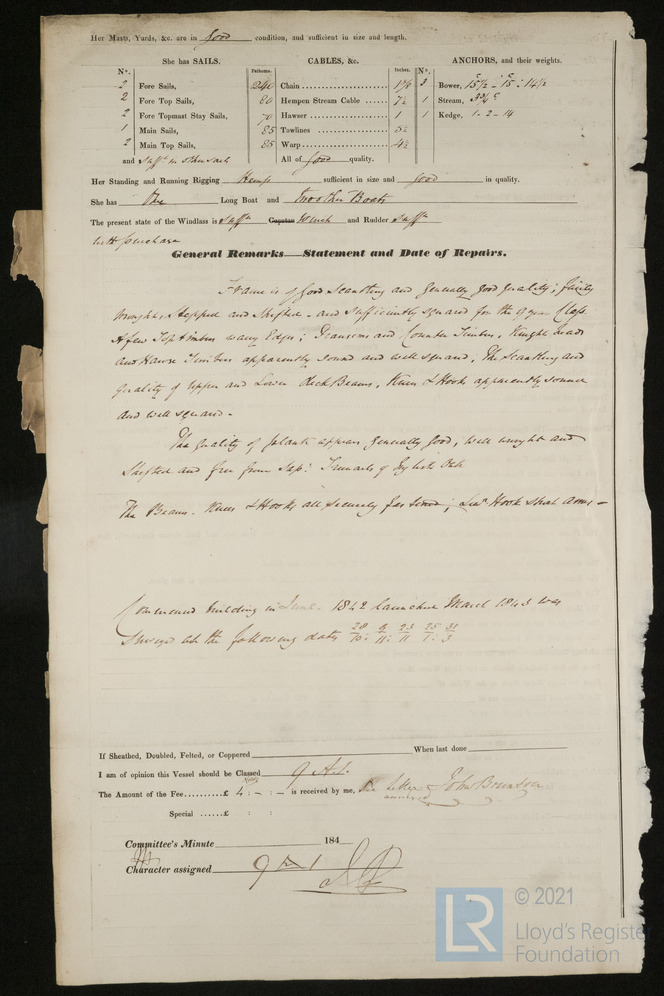 Her Masts, Yards, &c. are in good condition, and sufficient in size and length.
She has SAILS.
CABLES, &c.
ANCHORS, and their weights.
N°. Fathoms. Inches. N°.
2 Fore Sails, 240 Chain 1 3 Bower, 15½ - 15 - 14½
2 Fore Top Sails, 80 Hempen Stream Cable 7½ 1 Stream,
2 Fore Topmast Stay Sails, 70 Hawser 1 Kedge, 1-2-14
1 Main Sails, 85 Towlines
2 Main Top Sails, 85 Warp
and All of good quality.
Her Standing and Running Rigging Hemp sufficient in size and good in quality.
She has One Long Boat and two other Boats
The present state of the Windlass is Capstan Winch and Rudder
with purchase
General Remarks—Statement and Date of Repairs.
Frame is of good scantling and generally good quality; fairly
wrought, Stepped and Shifted - and sufficiently squared for the 9 year Class
A few Toptimbers wany Edges; Transoms and Counter Timbers, Knight heads
and Hawse Timbers apparently sound and well squared, The Scantling and
quality of Upper and Lower deck Beams, Knees & Hooks apparently sound
and well squared -
The quality of plank appears generally good, well wrought and
Shifted and free from Sap: Treenails of English Oak
The Beams. Knees & Hooks all securely fastened; Hook short arms -
Commenced building in June 1842 launched March 1843 was
Surveyed at the following dates 28/10: 9/11: 23/11 25/1: 31/3
If Sheathed, Doubled, Felted, or Coppered When last done
I am of opinion this Vessel should be Classed 9 A.1.
The Amount of the Fee £ 4 : - : - is received by me, See Letter John Brunton
annexed
Special £ : :
Committee's Minute 184
Character assigned 9 A 1
© 2021
LR
Lloyd's Register
Foundation